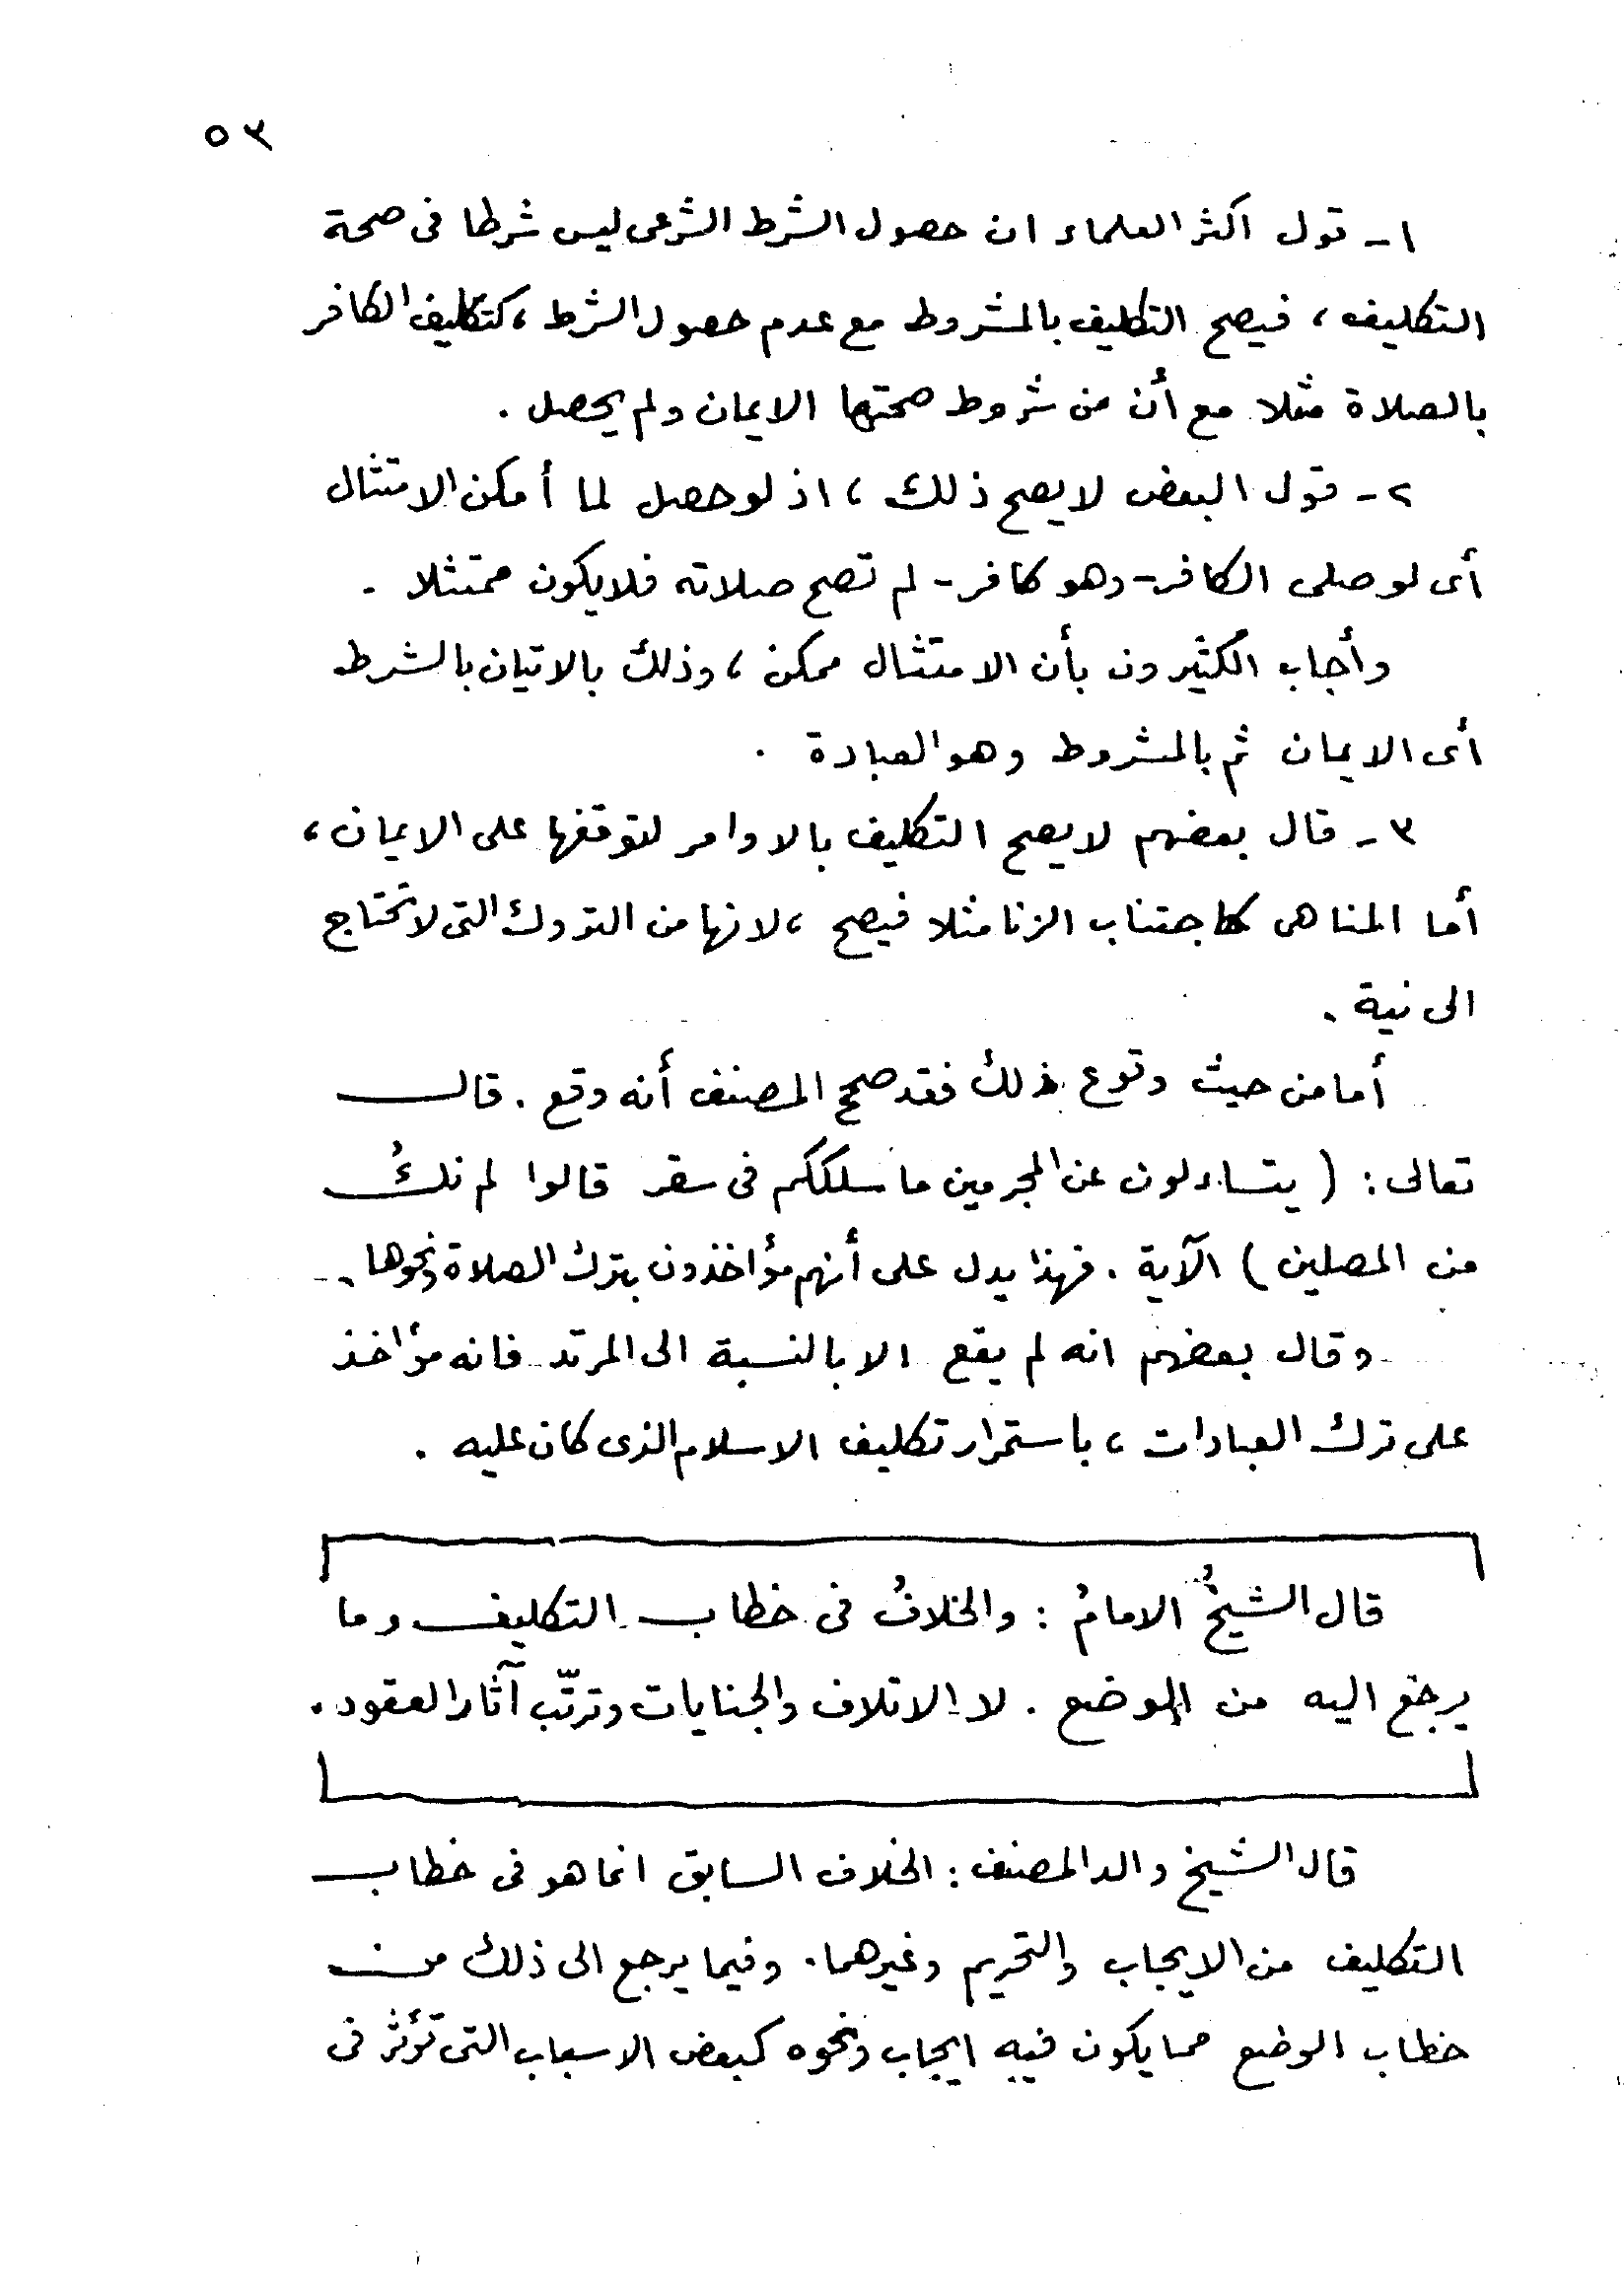 ٥٣
١ـ قول أكثر العلماء ان حصول الشرط الشرعى ليس شرطا فى صحة
التكليف ، فيصح التكليف بالمشروط مع عدم حصول الشرط ، كتكليف الكافر
بالصلاة مثلا مع أن من شروط صحتها الايمان ولم يحصل .
٢ـ قول البعض لا يصح ذلك ، اذ لو حصل لما أمكن الامتثال
أى لو صلى الكافر - وهو كافر - لم تصح صلاته فلا يكون ممتثلا .
وأجاب الكثيرون بأن الامتثال ممكن ، وذلك بالاتيان بالشرط
أى الايمان ثم بالمشروط وهو العبادة .
٣ـ قال بعضهم لا يصح التكليف بالاوامر لتوقفها على الايمان ،
أما المناهى كاجتناب الزنا مثلا فيصح ، لانها من التروك التى لا تحتاج
الى نية .
أما من حيث وقوع ذلك فقد صحح المصنف أنه وقع . قال
تعالى : ( يتساءلون عن المجرمين ما سلككم فى سقر قالوا لم نكُ
من المصلين ) الآية . فهذا يدل على أنهم مؤاخذون بترك الصلاة ونحوها .
وقال بعضهم انه لم يقع الا بالنسبة الى المرتد فانه مؤاخذ
على ترك العبادات ، باستمرار تكليف الاسلام الذى كان عليه .
قال الشيخُ الامامُ : والخلافُ فى خطاب التكليف وما
يرجع اليه من الوضع . لا الاتلاف والجنايات وترتّب آثار العقود .
قال الشيخ والد المصنف : الخلاف السابق انما هو فى خطاب
التكليف من الايجاب والتحريم وغيرهما . وفيما يرجع الى ذلك من
خطاب الوضع مما يكون فيه ايجاب ونحوه كبعض الاسباب التى تؤثر فى